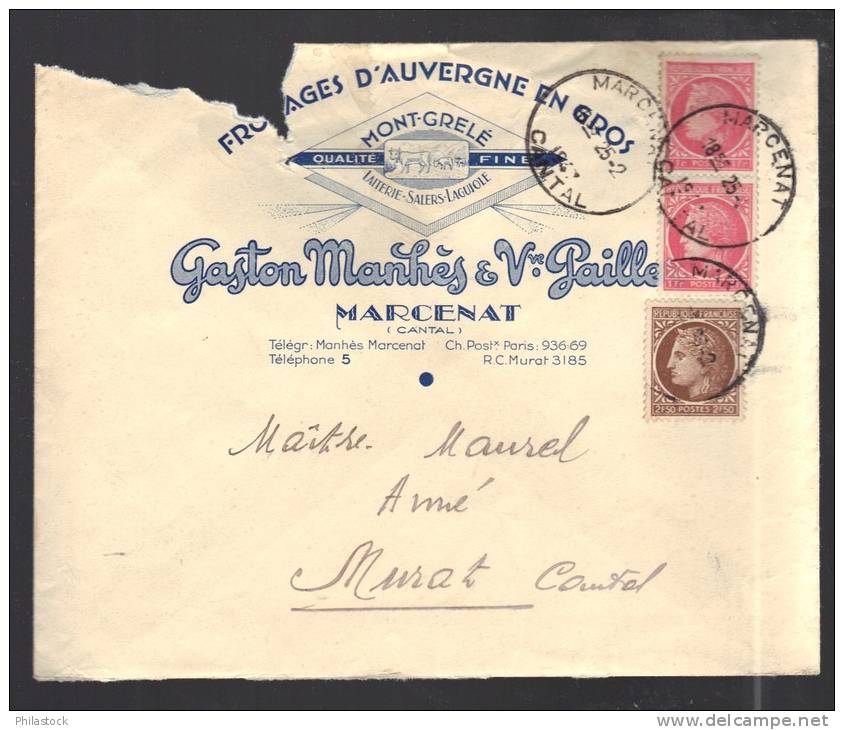 FRO AGES D'AUVERGNE EN GROS
MONT-GRELÉ
QUALITÉ FINE
LAITERIE-SALERS-LAGUIOLE
Gaston Manhès & Vve. Paille
MARCENAT
(CANTAL)
Télégr: Manhès Marcenat Ch. Postx Paris: 936-69
Téléphone 5 R.C. Murat 3185
MARCENAT
25-2
CANTAL
MARCENAT
18 25-2
AL
1 Fr POSTES
1 Fr POSTES
MARCENAT
REPUBLIQUE FRANCAISE
2F50 POSTES 2F50
Maître Maurel
Murat Cantal
Philastock
www.delcampe.net